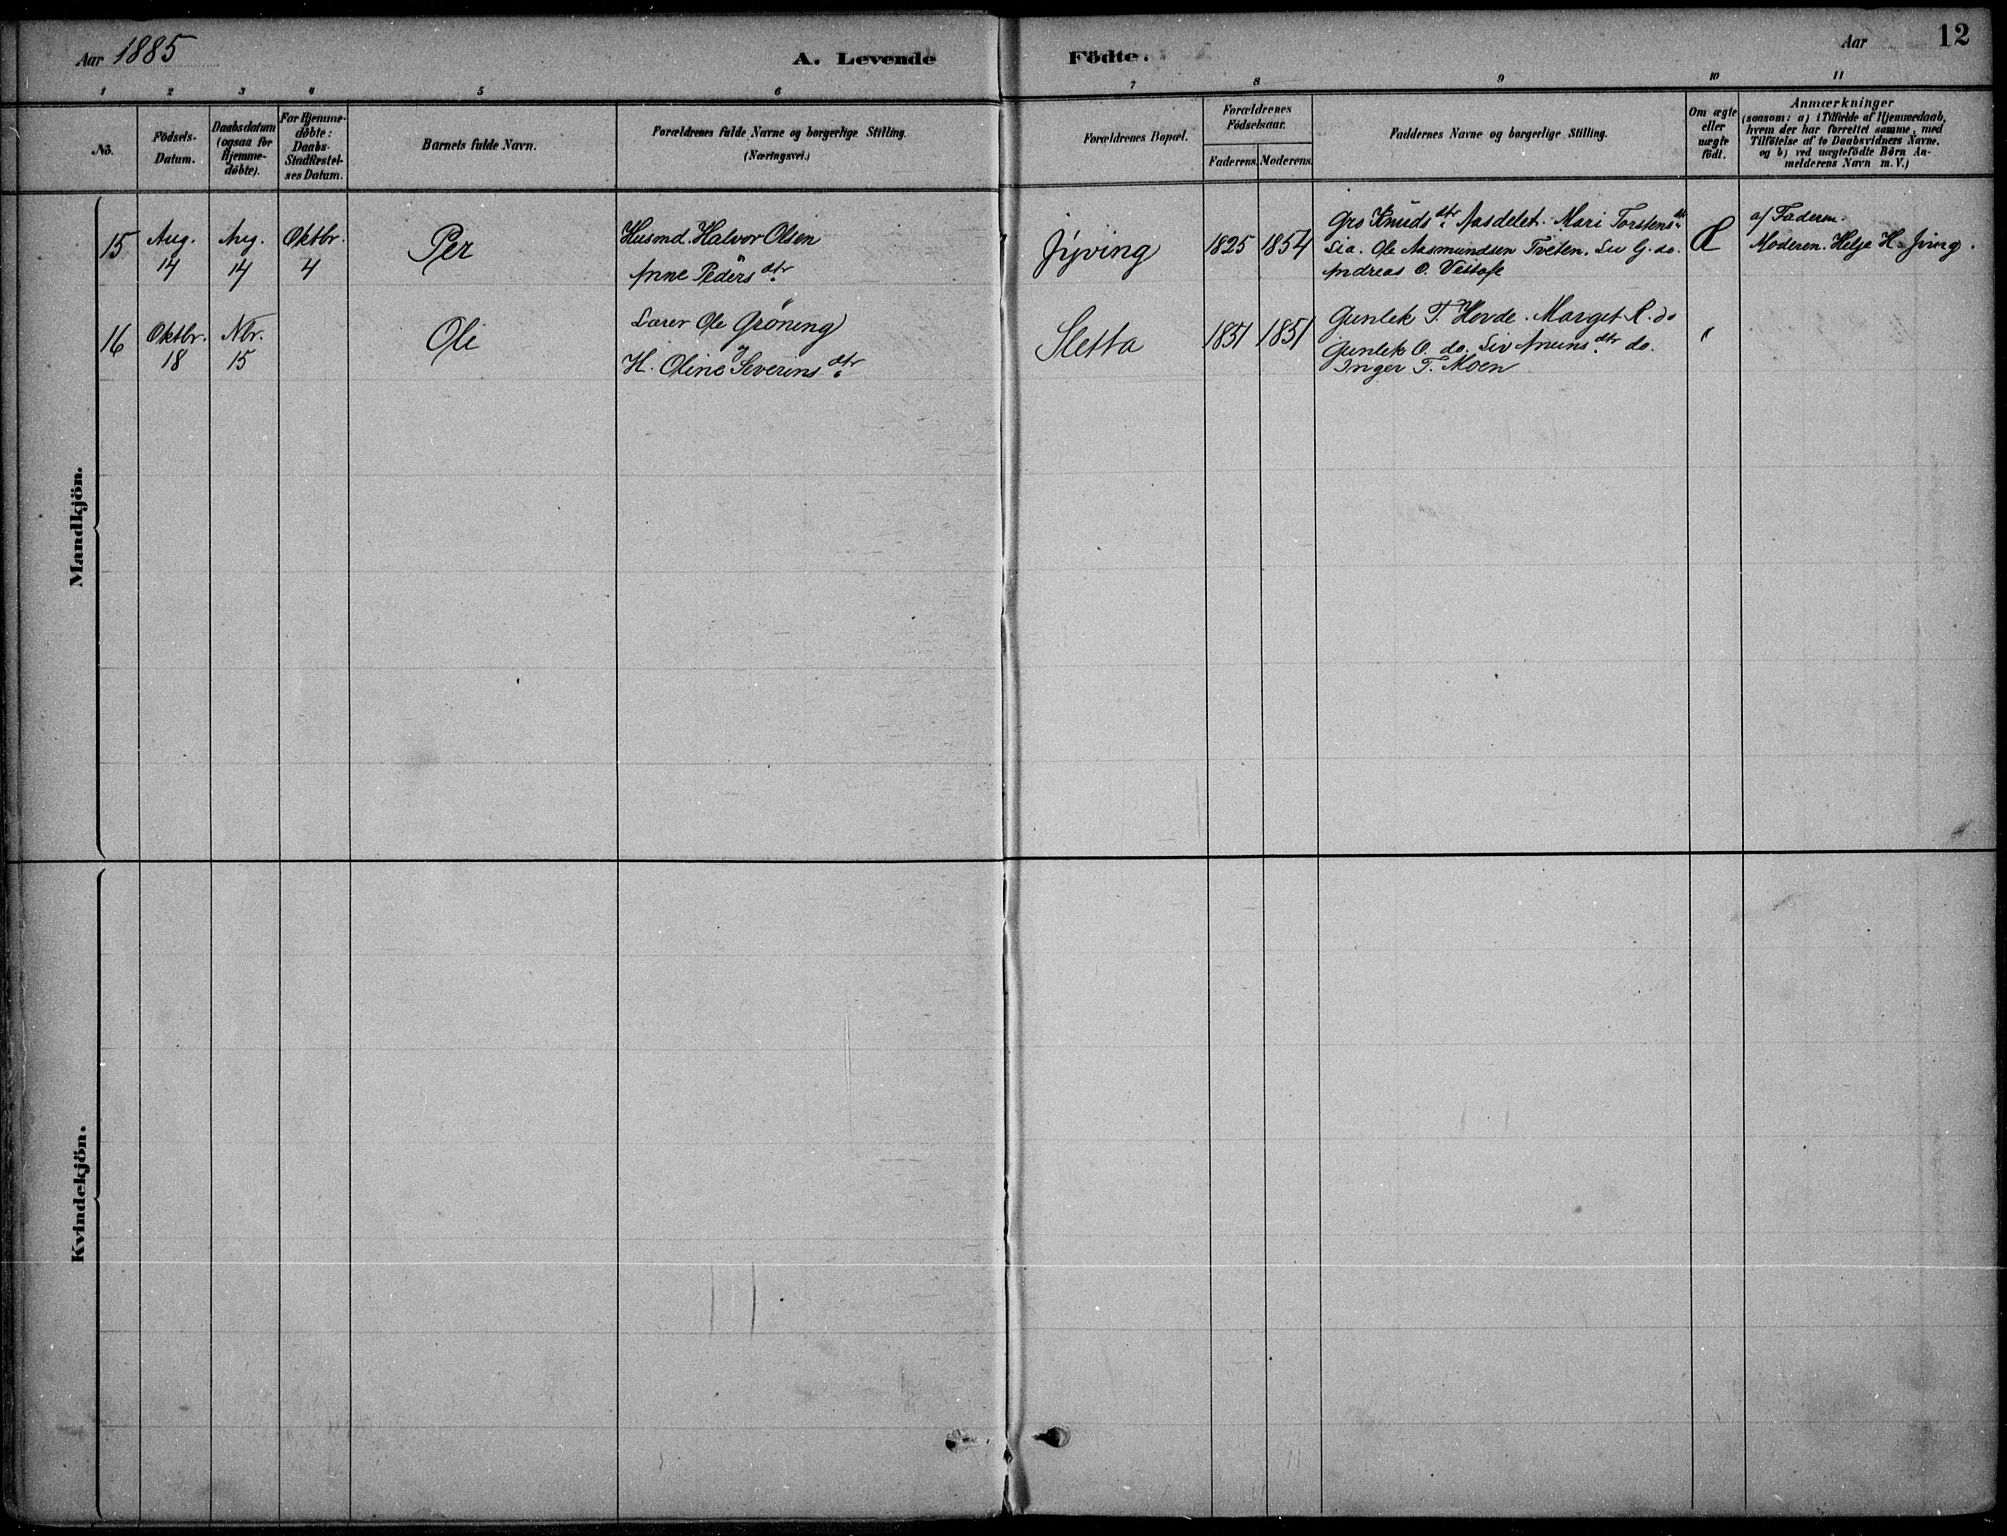 Aar 1885
A. Levende Födte.
Aar
12
1 2 3 4 5 6 7 8 9 10 11
No.
Födsels-
Datum.
Daabsdatum
(ogsaa for
Hjemme-
döbte).
For Hjemme-
döbte:
Daabs-
Stadfæstel-
ses Datum.
Barnets fulde Navn.
Forældrenes fulde Navne og borgerlige Stilling.
(Næringsvei.)
Forældrenes Bopæl.
Forældrenes
Födselsaar.
Faderens. Moderens.
Faddernes Navne og borgerlige Stilling.
Om ægte
eller
uægte
födt.
Anmærkninger
(saasom: a) i Tilfælde af Hjemmedaab,
hvem der har forrettet samme, med
Tilföielse af to Daabsvidners Navne,
og b) ved uægtefödte Börn An-
melderens Navn m. V.)
Mandkjön.
15
Aug.
14
Aug.
14
Oktbr.
4
Per
Husmd. Halvor Olsen
Anne Peders dtr
Jyving
1825 1854
Gro Knuds dtr Aasdelet. Mari Torstens dtr
Lia. Ole Aasmundsen Tveten. Liv G. do.
Andreas O.
Æ
af Faderen.
Moderen. Helje H. Jving.
16
Oktbr.
18
Nbr.
15
Ole
Lærer Ole Gröning
H. Oline Severins dtr
Sletta
1851 1851
Gunlek T. Hovde. Marget R. do
Gunlek O. do. Liv Aneuns dtr do.
Inger T. Moen
Kvindekjön.